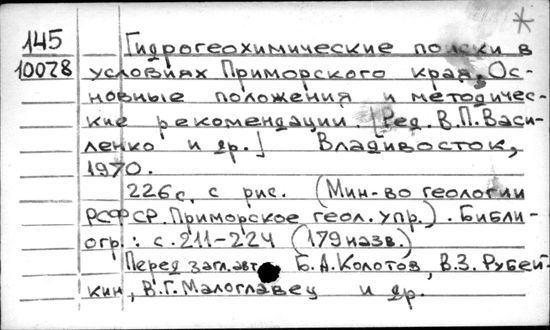 *
145 Гидрогеохимические поиски в
10078 условиях Приморского края. Ос-
новные положения и методичес-
кие рекомендации. [Ред. В.П. Васи-
ленко и др.] Владивосток,
1970.
226с. с рис. (Мин-во геологии
РСФСР. Приморское геол. упр.). Библи-
огр.: с. 211-224 (179 назв.)
Перед загл. авт. Б.А. Колотов, В.З. Рубей-
кин, В.Г. Малоглавец и др.